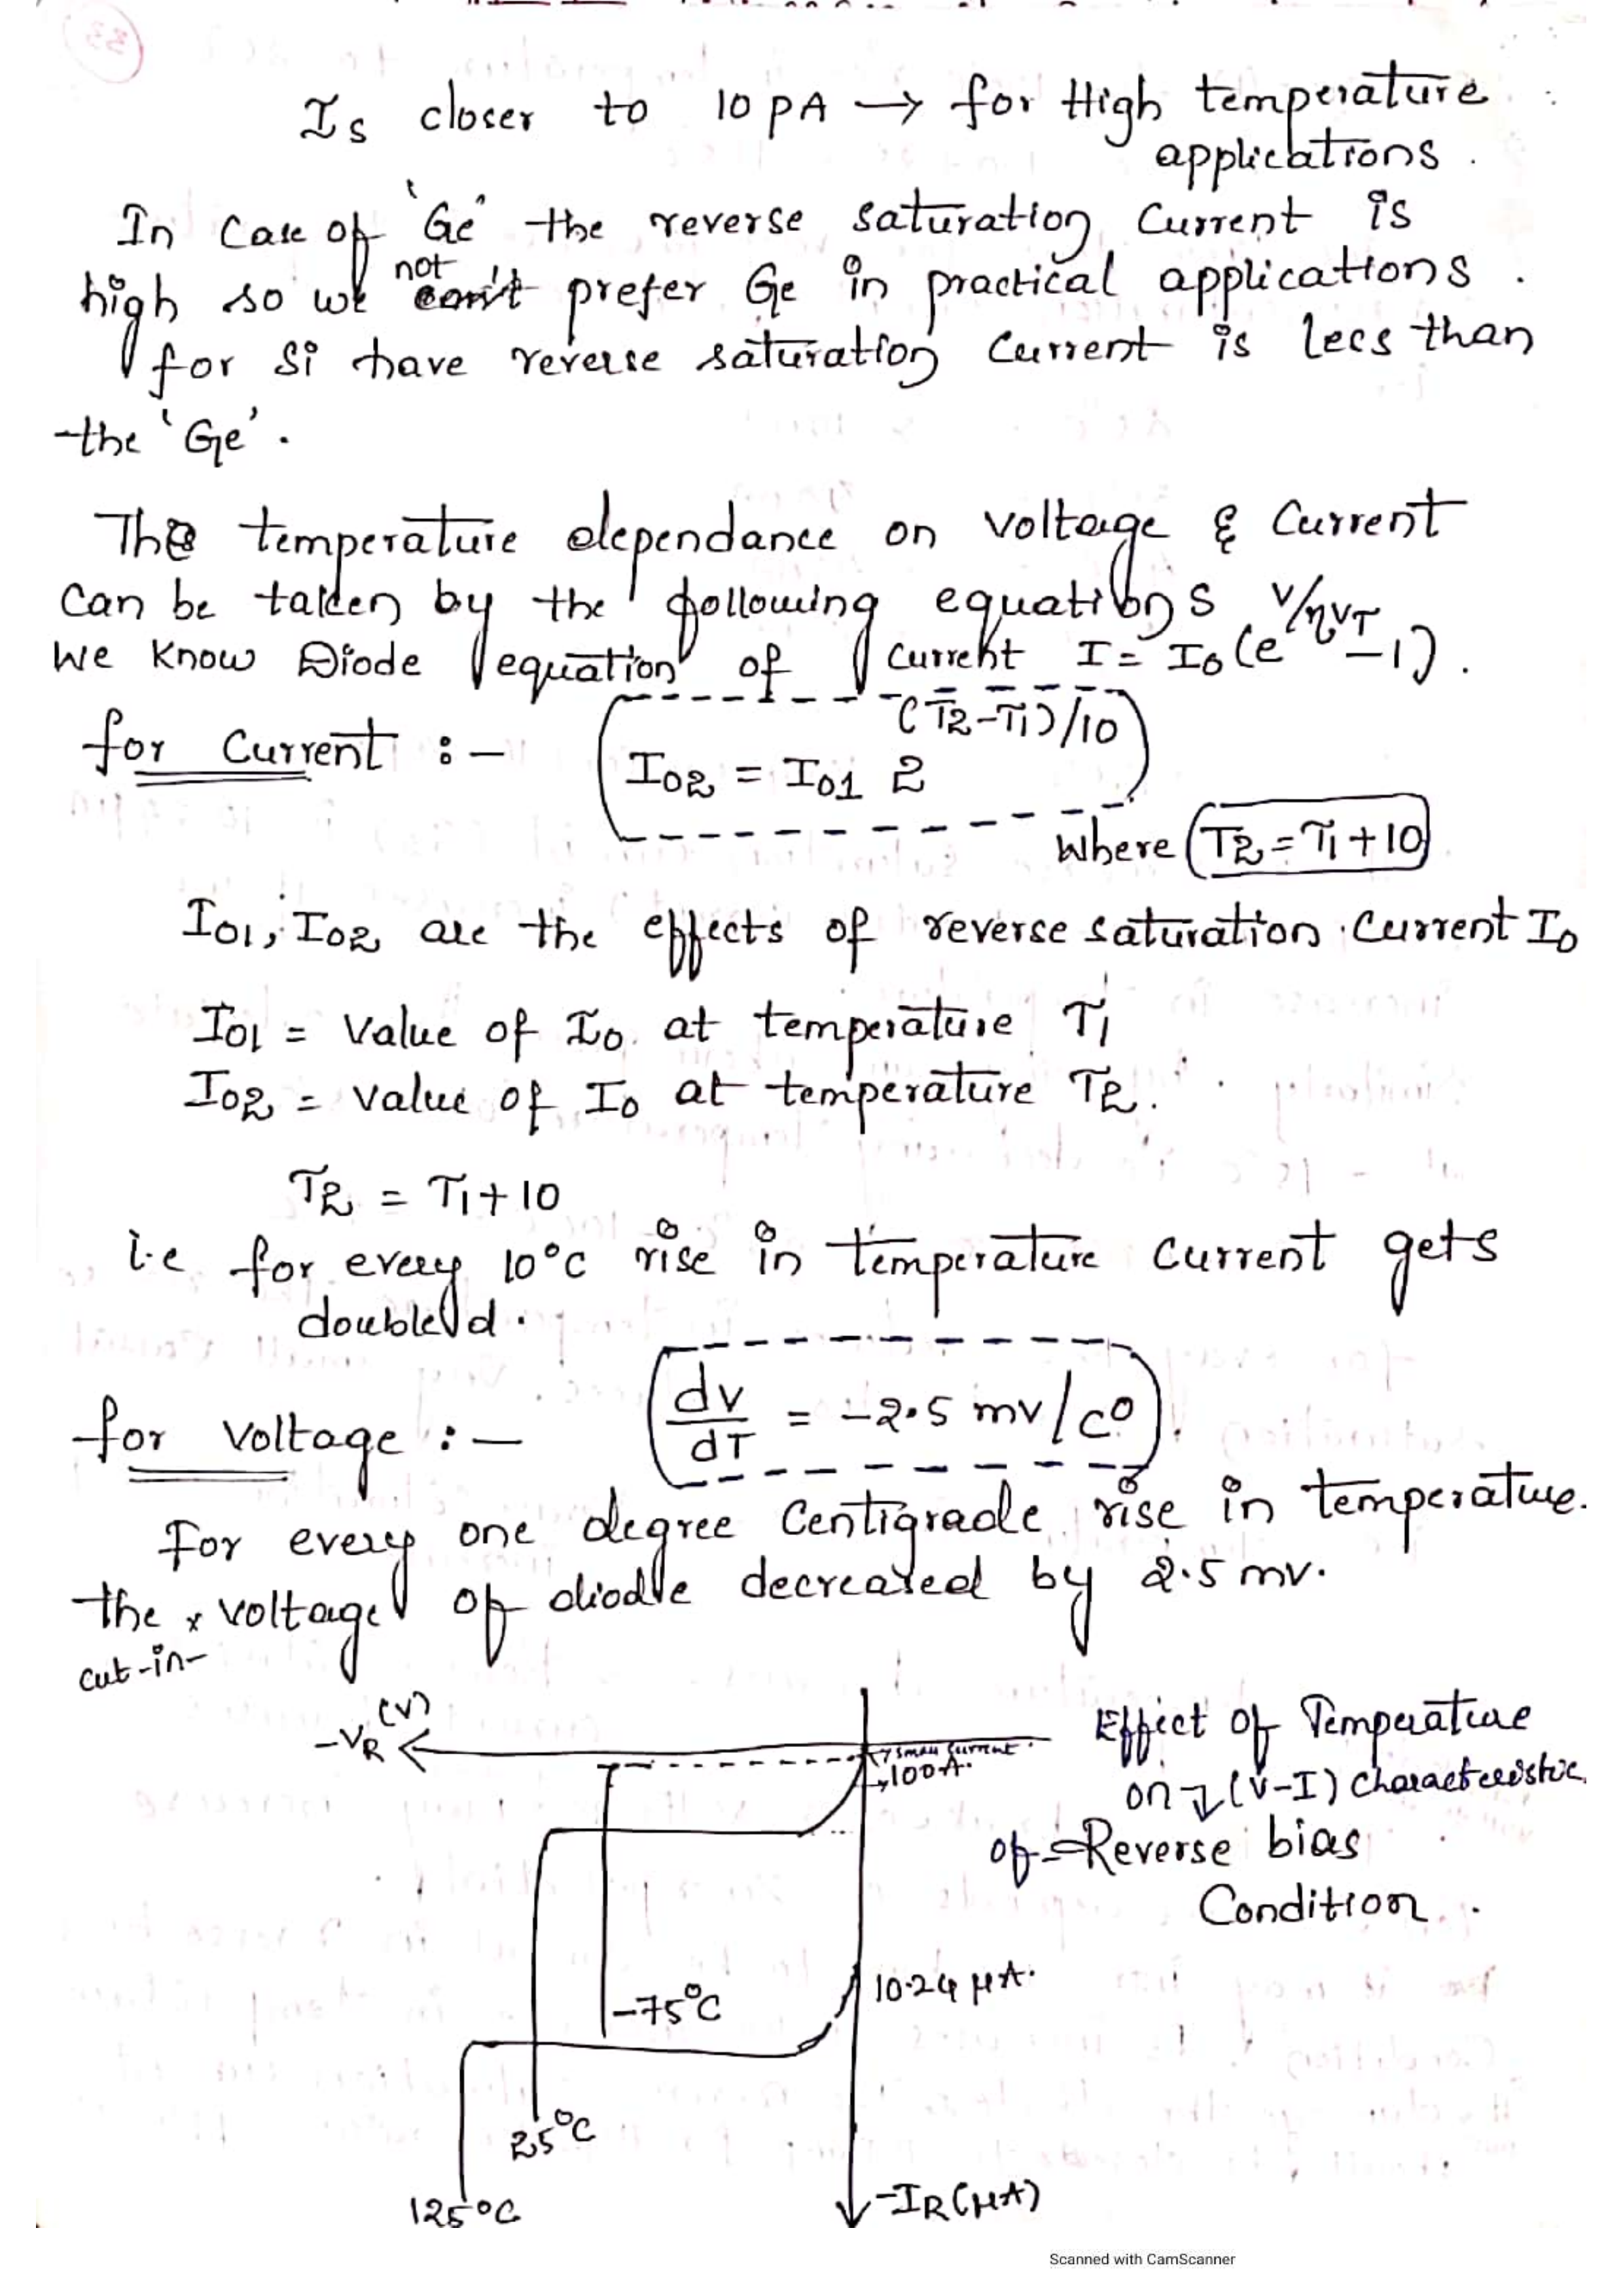 Is closer to 10 PA → for High temperature
applications.
In Case of 'Ge' the reverse saturation Current is
high so we not prefer Ge in practical applications.
for Si have reverse saturation Current is less than
the 'Ge'.
The temperature dependance on voltage & Current
Can be taken by the following equations
We know Diode equation of Current I = I0 (e^V/ηVT - 1).
for Current :- I02 = I01 2^(T2-T1)/10
Where T2 = T1 + 10
I01, I02 are the effects of reverse saturation Current I0
I01 = Value of I0 at temperature T1
I02 = Value of I0 at temperature T2.
T2 = T1 + 10
i.e for every 10°C rise in temperature Current gets
doubled.
for Voltage :- dv/dT = -2.5 mv/C°
For every one degree Centigrade rise in temperature.
the x voltage of diode decreased by 2.5 mv.
cut-in-
-VR (V)
small current
100A.
Effect of Temperature
on (V-I) Characteristic
of Reverse bias
Condition.
10.24 μA.
-75°C
25°C
125°C
-IR (μA)
Scanned with CamScanner